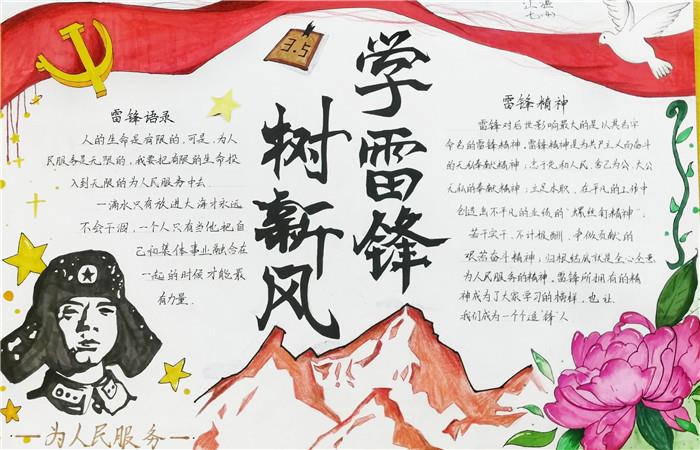 3.5
学雷锋
树新风
雷锋语录
人的生命是有限的,可是,为人
民服务是无限的,我要把有限的生命投
入到无限的为人民服务中去
一滴水只有放进大海才永远
不会干涸,一个人只有当他把自
己和集体事业融合在
一起的时候才能最
有力量.
雷锋精神
雷锋对后世影响最大的是以其名字
命名的雷锋精神,雷锋精神是为共产主义而奋斗
的无私奉献精神;忠于党和人民、舍己为公、大公
无私的奉献精神;立足本职、在平凡的工作中
创造出不平凡的业绩的"螺丝钉精神",
苦干实干、不计报酬、争做贡献的
艰苦奋斗精神;归根结底就是全心全意
为人民服务的精神。雷锋所拥有的精
神成为了大家学习的榜样,也让
我们成为一个个追"锋"人
为人民服务